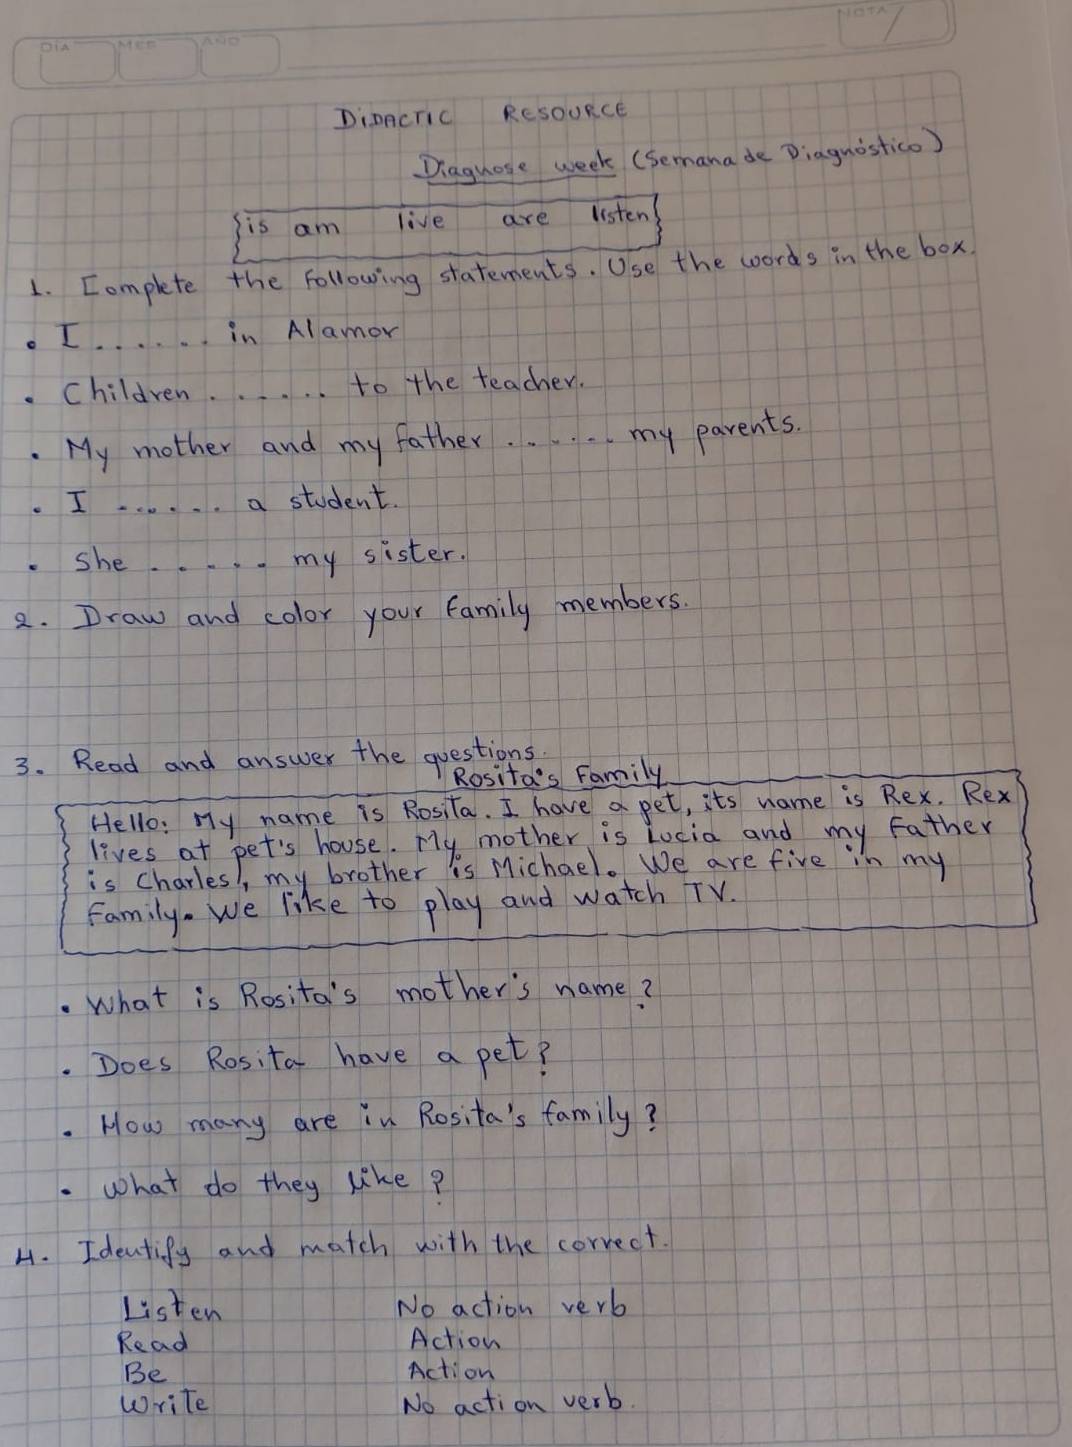 DIA MES AÑO NOTA
DIDACTIC RESOURCE
Diagnose week (Semana de Diagnóstico)
is am live are listen
1. Complete the following statements. Use the words in the box.
• I ...... in Alamor
• Children ...... to the teacher.
• My mother and my father ...... my parents.
• I ...... a student.
• She ..... my sister.
2. Draw and color your family members.
3. Read and answer the questions.
Rosita's Family
Hello: My name is Rosita. I have a pet, its name is Rex. Rex
lives at pet's house. My mother is Lucia and my Father
is Charles, my brother is Michael. We are five in my
Family. We like to play and watch TV.
• What is Rosita's mother's name?
• Does Rosita have a pet?
• How many are in Rosita's family?
• What do they like?
4. Identify and match with the correct.
Listen No action verb
Read Action
Be Action
Write No action verb.